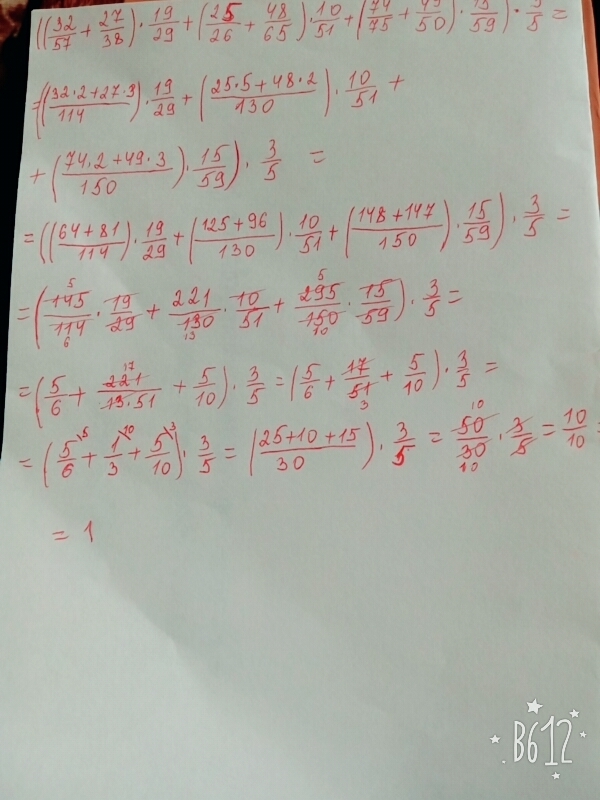 ((32/57 + 27/38) · 19/29 + (25/26 + 48/65) · 10/51 + (74/75 + 49/50) · 15/59) · 3/5 =
= ((32·2+27·3/114) · 19/29 + (25·5+48·2/130) · 10/51 +
+ (74·2+49·3/150) · 15/59) · 3/5 =
= ((64+81/114) · 19/29 + (125+96/130) · 10/51 + (148+147/150) · 15/59) · 3/5 =
= (145/114 · 19/29 + 221/130 · 10/51 + 295/150 · 15/59) · 3/5 =
= (5/6 + 221/13·51 + 5/10) · 3/5 = (5/6 + 17/51 + 5/10) · 3/5 =
= (5/6 + 1/3 + 5/10) · 3/5 = (25+10+15/30) · 3/5 = 50/30 · 3/5 = 10/10 =
= 1
B612